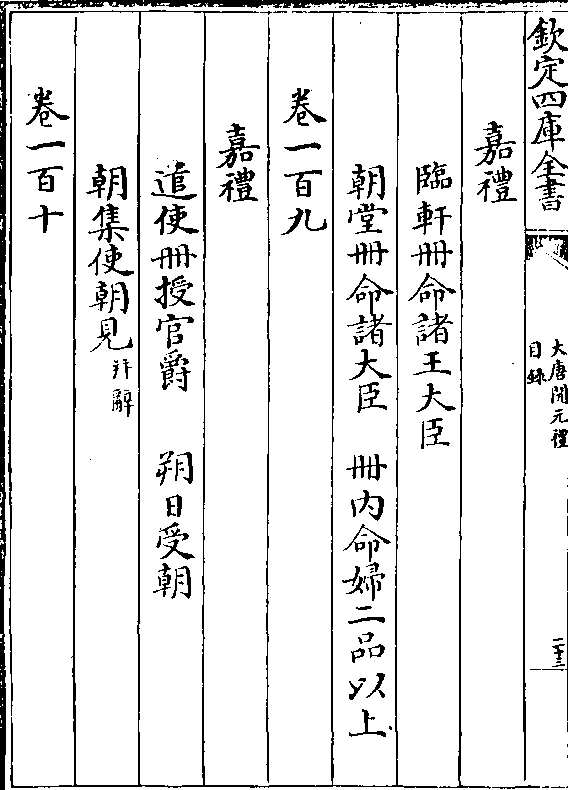 欽定四庫全書
大唐開元禮
目錄
二十三
嘉禮
臨軒冊命諸王大臣
朝堂冊命諸大臣 冊內命婦二品以上
卷一百九
嘉禮
遣使冊授官爵 朔日受朝
朝集使朝見并辭
卷一百十